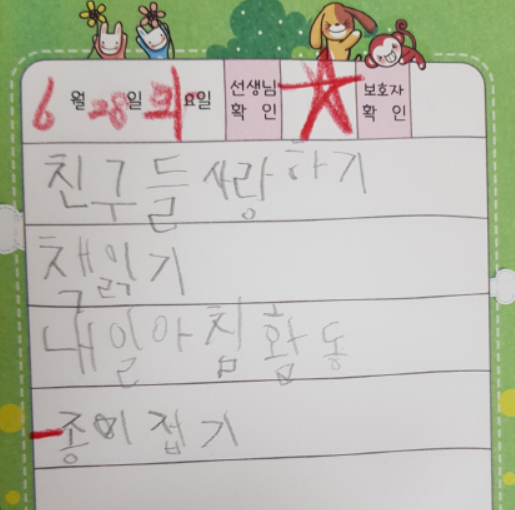 6월 28일 화요일 선생님 확인 보호자 확인
친구들 사랑하기
책읽기
내일아침활동
종이접기